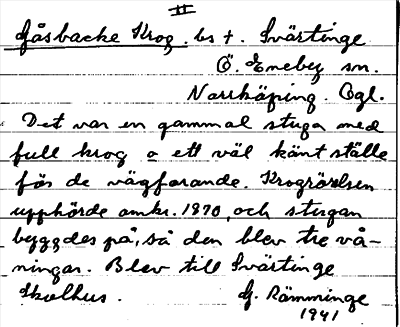 II
Gåsbacke Krog. bs t. Svärtinge
Ö. Eneby sn.
Norrköping. Ögl.
Det var en gammal stuga med
full krog o ett väl känt ställe
för de vägfarande. Krogrörelsen
upphörde omkr. 1870, och stugan
byggdes på, så den blev tre vå-
ningar. Blev till Svärtinge
Skolhus. G. Rämminge
1941